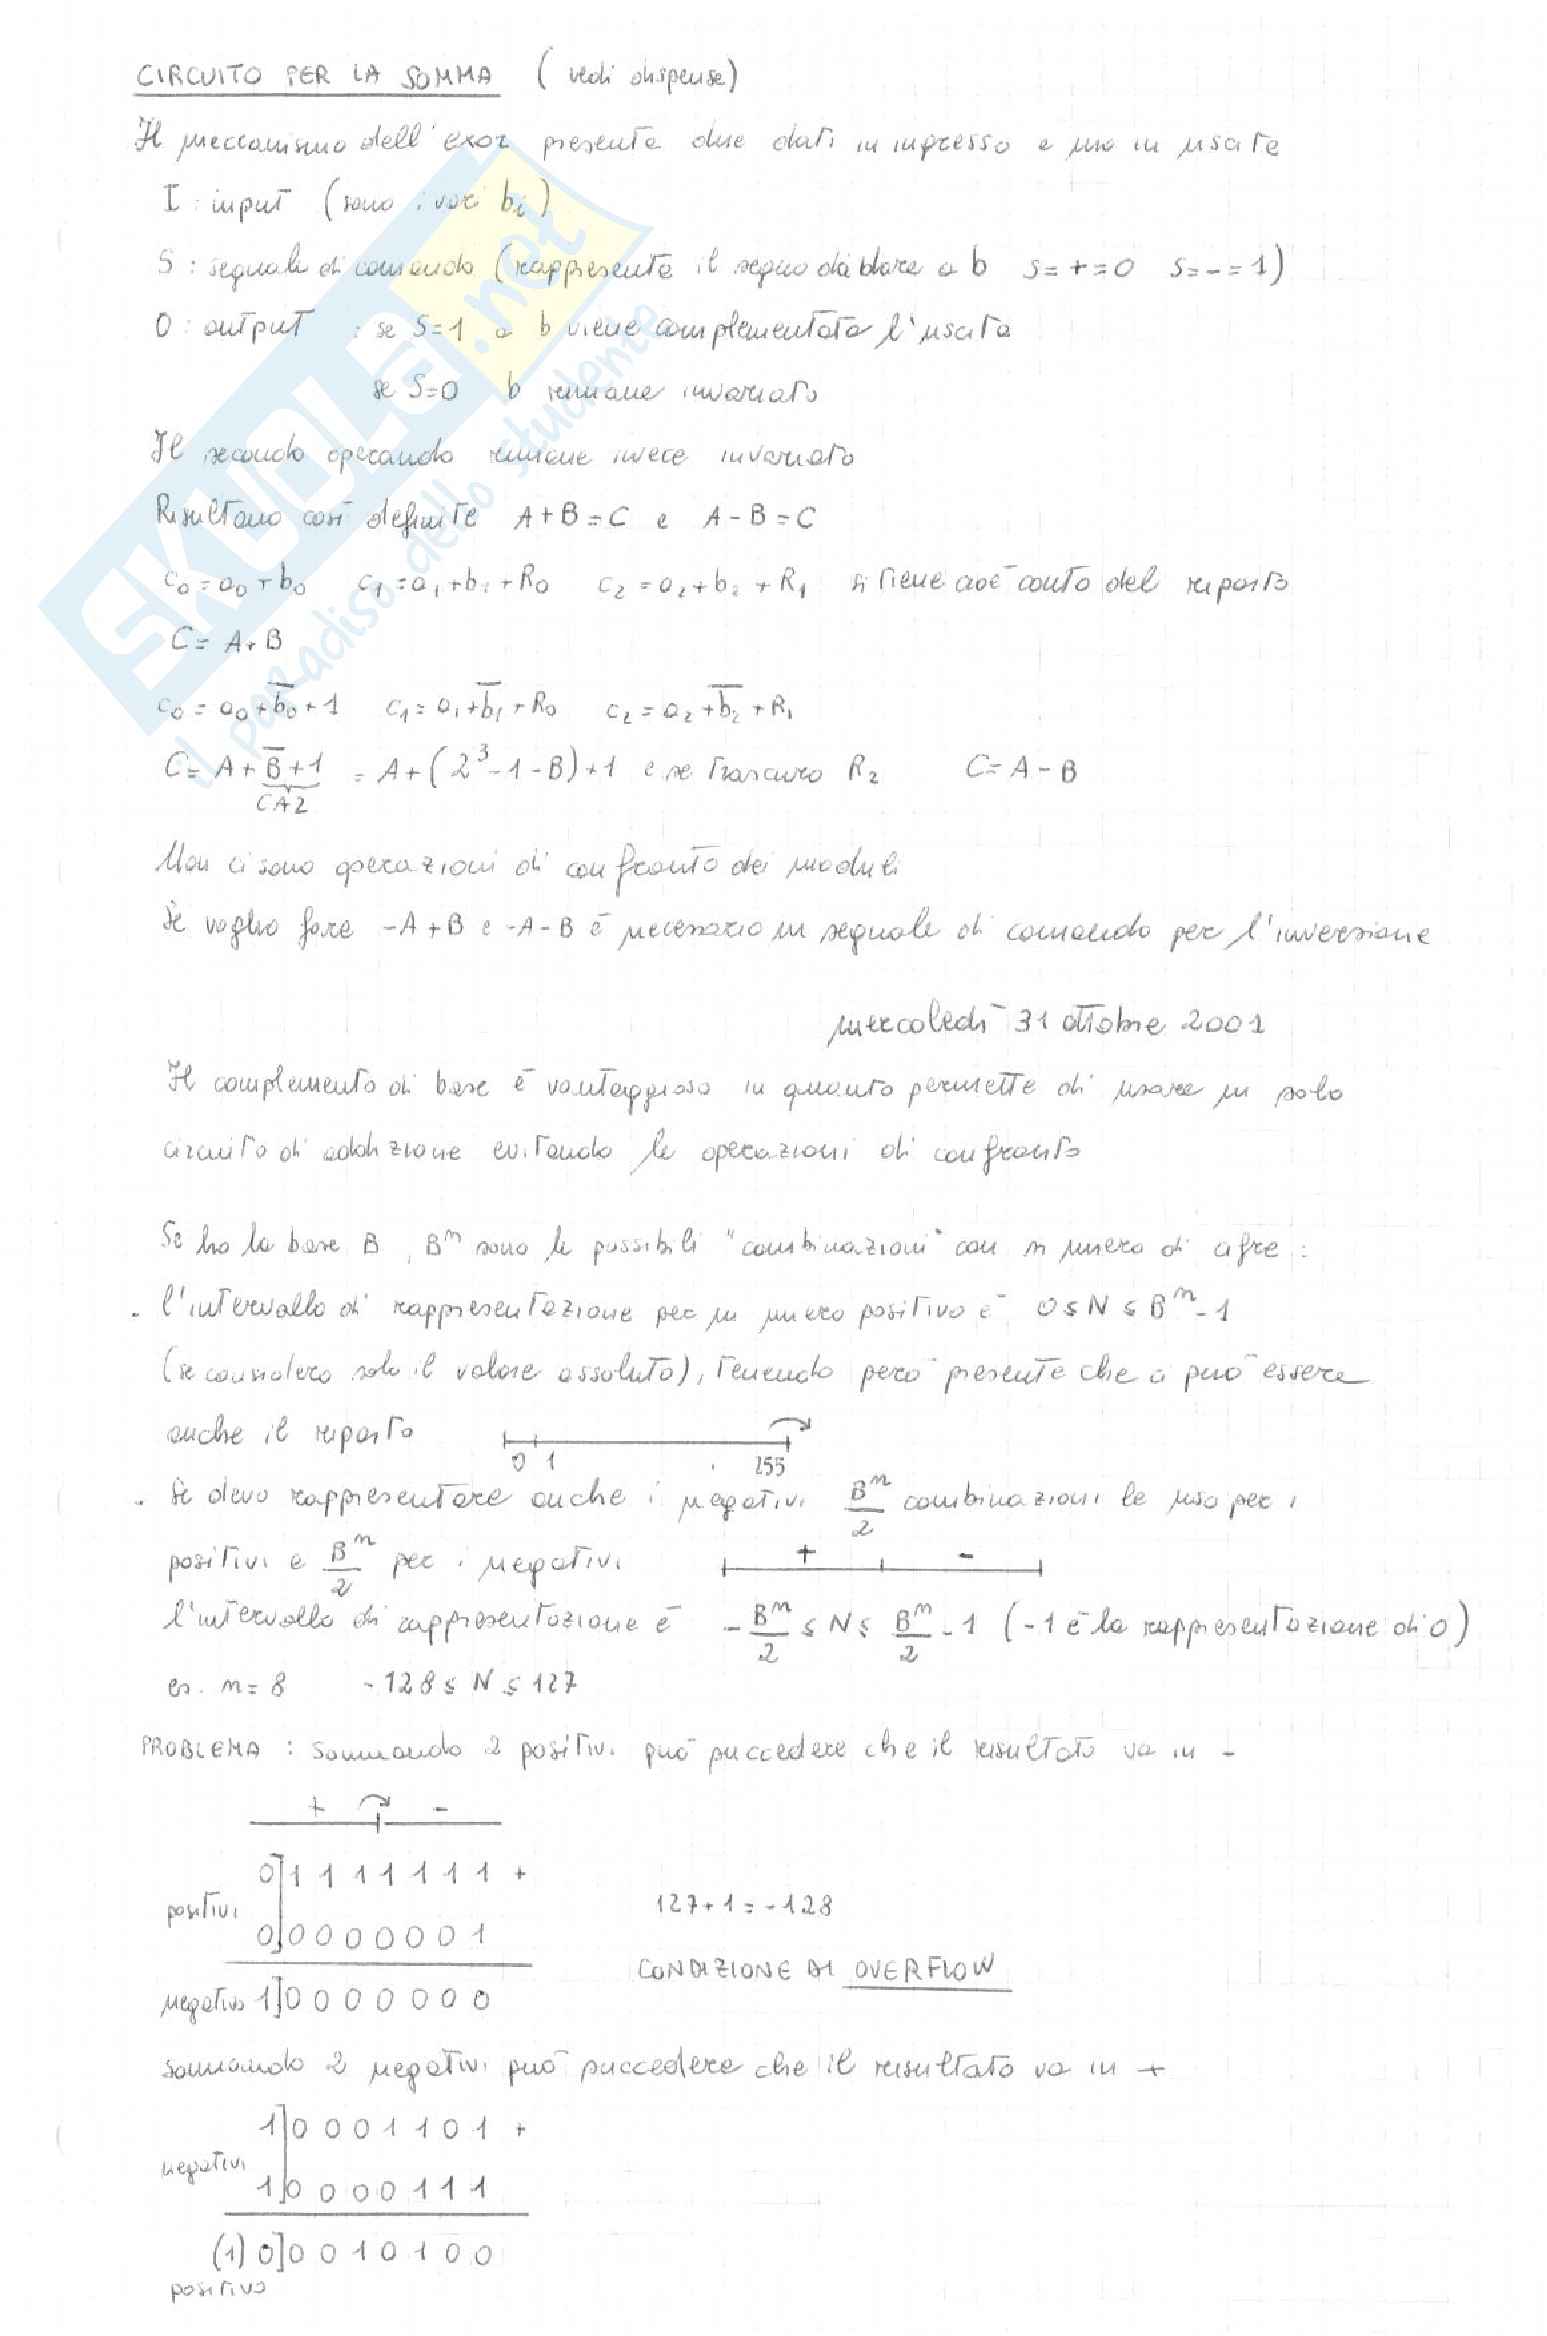 CIRCUITO PER LA SOMMA (vedi dispense)
Il meccanismo dell'exor presenta due dati in ingresso e uno in uscita
I : input (sono i vari bi)
S : segnale di comando (rappresenta il segno da dare a b S=+=0 S=-=1)
O : output : se S=1 a b viene complementata l'uscita
se S=0 b rimane invariato
Il secondo operando rimane invece invariato
Risultano così definite A+B=C e A-B=C
c₀=a₀+b₀ c₁=a₁+b₁+R₀ c₂=a₂+b₂+R₁ si tiene cioè conto del riporto
C=A+B
c₀=a₀+b̅₀+1 c₁=a₁+b̅₁+R₀ c₂=a₂+b̅₂+R₁
C=A+B̅+1 = A+(2³-1-B)+1 e se trascuro R₂ C=A-B
CA2
Non ci sono operazioni di confronto dei moduli
Se voglio fare -A+B e -A-B è necessario un segnale di comando per l'inversione
mercoledì 31 ottobre 2001
Il complemento di base è vantaggioso in quanto permette di usare un solo
circuito di addizione evitando le operazioni di confronto
Se ho la base B, Bⁿ sono le possibili "combinazioni" con n numero di cifre :
. l'intervallo di rappresentazione per un numero positivo è 0≤N≤Bⁿ-1
(se considero solo il valore assoluto), tenendo però presente che ci può essere
anche il riporto
0 1 255
. Se devo rappresentare anche i negativi Bⁿ/2 combinazioni le uso per i
positivi e Bⁿ/2 per i negativi + -
l'intervallo di rappresentazione è -Bⁿ/2 ≤ N ≤ Bⁿ/2 -1 (-1 è la rappresentazione di 0)
es. n=8 -128≤N≤127
PROBLEMA : sommando 2 positivi può succedere che il risultato va in -
+ -
0]1 1 1 1 1 1 1 +
positivi 127+1=-128
0]0 0 0 0 0 0 1
CONDIZIONE DI OVERFLOW
negativo 1]0 0 0 0 0 0 0
sommando 2 negativi può succedere che il risultato va in +
1]0 0 0 1 1 0 1 +
negativi
1]0 0 0 0 1 1 1
(1) 0]0 0 1 0 1 0 0
positivo
SKUOLA.net
il paradiso dello studente